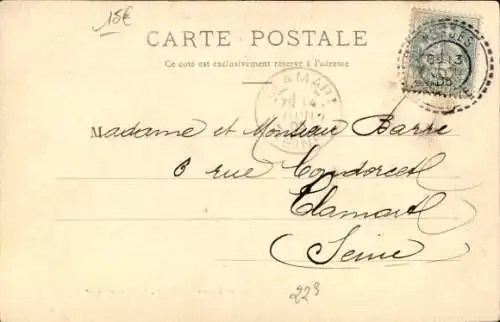 15€
CARTE POSTALE
Ce côté est exclusivement réservé à l'adresse
CLAMART
SEINE
Madame et Monsieur Barre
8 rue Condorcet
Clamart
Seine
223